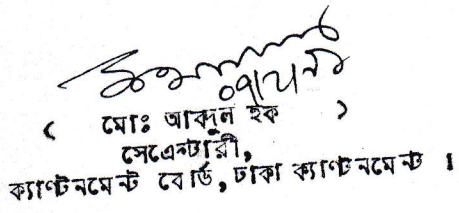 ( মোঃ আবদুল হক )
সেক্রেটারী,
ক্যাণ্টনমেন্ট বোর্ড, ঢাকা ক্যাণ্টনমেন্ট ।